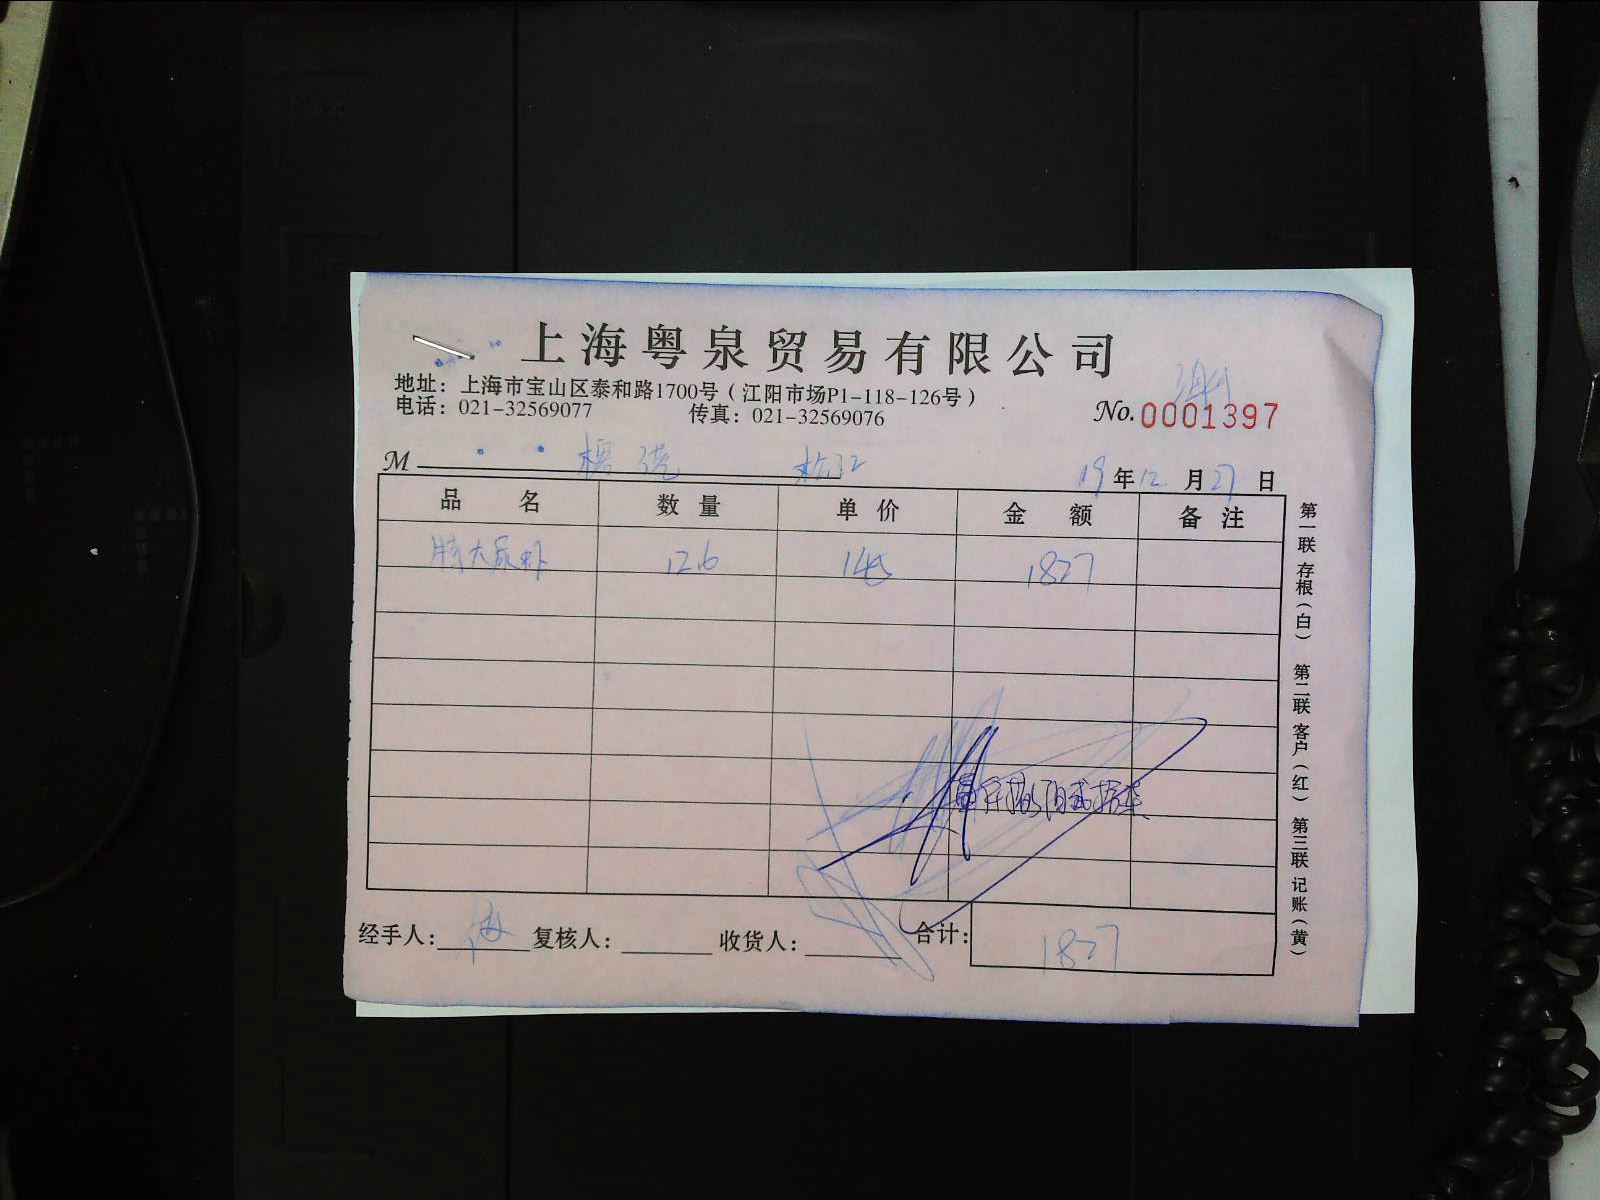 上海粤泉贸易有限公司
地址：上海市宝山区泰和路1700号（江阳市场P1-118-126号）
电话：021-32569077 传真：021-32569076
No.0001397
M 松江 19年12月27日
品名 数量 单价 金额 备注
特大尿虾 126 145 1827
经手人： 复核人： 收货人： 合计：1827
第一联 存根（白） 第二联 客户（红） 第三联 记账（黄）